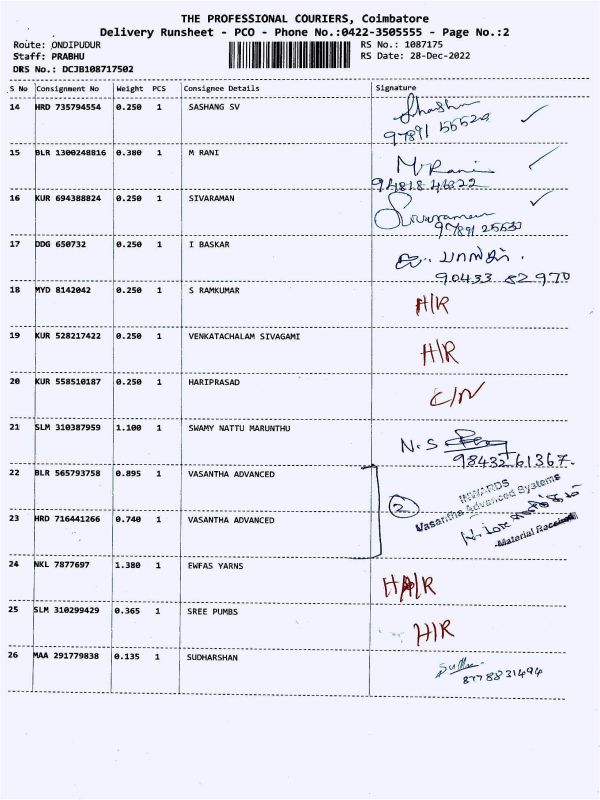 THE PROFESSIONAL COURIERS, Coimbatore
Delivery Runsheet - PCO - Phone No.:0422-3505555 - Page No.:2
Route: ONDIPUDUR RS No.: 1087175
Staff: PRABHU RS Date: 28-Dec-2022
DRS No.: DCJB108717502
S No Consignment No Weight PCS Consignee Details Signature
14 HRD 735794554 0.250 1 SASHANG SV
15 BLR 1300248816 0.380 1 M RANI M Rani
94818 46322
16 KUR 694388824 0.250 1 SIVARAMAN Sivaraman
17 DDG 650732 0.250 1 I BASKAR
90433 82 970
18 MYD 8142042 0.250 1 S RAMKUMAR H/R
19 KUR 528217422 0.250 1 VENKATACHALAM SIVAGAMI H/R
20 KUR 558510187 0.250 1 HARIPRASAD C/N
21 SLM 310387959 1.100 1 SWAMY NATTU MARUNTHU N.S
98432 61367.
22 BLR 565793758 0.895 1 VASANTHA ADVANCED 2 INWARDS
Vasantha Advanced Systems
23 HRD 716441266 0.740 1 VASANTHA ADVANCED
Material Received
24 NKL 7877697 1.380 1 EWFAS YARNS H/R
25 SLM 310299429 0.365 1 SREE PUMBS H/R
26 MAA 291779838 0.135 1 SUDHARSHAN
8778831494